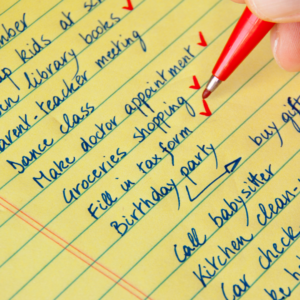 kids at
library books
teacher meeting
Dance class
Make doctor appointment
Groceries shopping
Fill in tax form
Birthday party
buy
Call babysitter
Kitchen clean
Car check